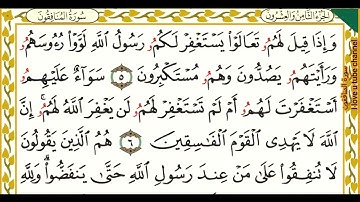 الجزء الثامن والعشرون
سورة المنافقون
وَإِذَا قِيلَ لَهُمُۥ تَعَالَوْا۟ يَسْتَغْفِرْ لَكُمُۥ رَسُولُ ٱللَّهِ لَوَّوْا۟ رُءُوسَهُمُۥ
وَرَأَيْتَهُمُۥ يَصُدُّونَ وَهُمُۥ مُسْتَكْبِرُونَ ٥ سَوَآءٌ عَلَيْهِمُۥ
أَسْتَغْفَرْتَ لَهُمُۥ أَمْ لَمْ تَسْتَغْفِرْ لَهُمُۥ لَن يَغْفِرَ ٱللَّهُ لَهُمُۥ إِنَّ
ٱللَّهَ لَا يَهْدِى ٱلْقَوْمَ ٱلْفَٰسِقِينَ ٦ هُمُ ٱلَّذِينَ يَقُولُونَ
لَا تُنفِقُوا۟ عَلَىٰ مَنْ عِندَ رَسُولِ ٱللَّهِ حَتَّىٰ يَنفَضُّوا۟ وَلِلَّهِ
I love u tube channel